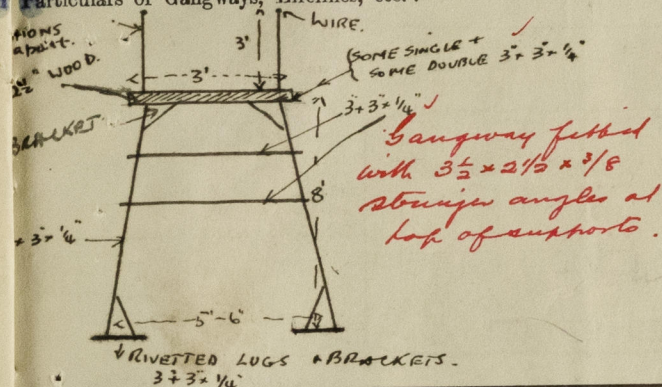 Particulars of Gangways,
WIRE.
TIONS
apart.
3'
SOME SINGLE +
SOME DOUBLE 3" + 3" × 1/4"
2½" WOOD.
3'
3 + 3 × 1/4"
BRACKET
Gangway fitted
with 3½ × 2½ × 3/8
stringer angles at
top of supports.
8'
× 3" × 1/4"
5'-6"
RIVETTED LUGS + BRACKETS.
3 + 3 × 1/4"